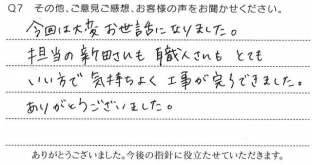 Q7 その他、ご意見ご感想、お客様の声をお聞かせください。
今回は大変お世話になりました。
担当の新田さんも職人さんもとても
いい方で気持ちよく工事が完了できました。
ありがとうございました。
ありがとうございました。今後の指針に役立たせていただきます。